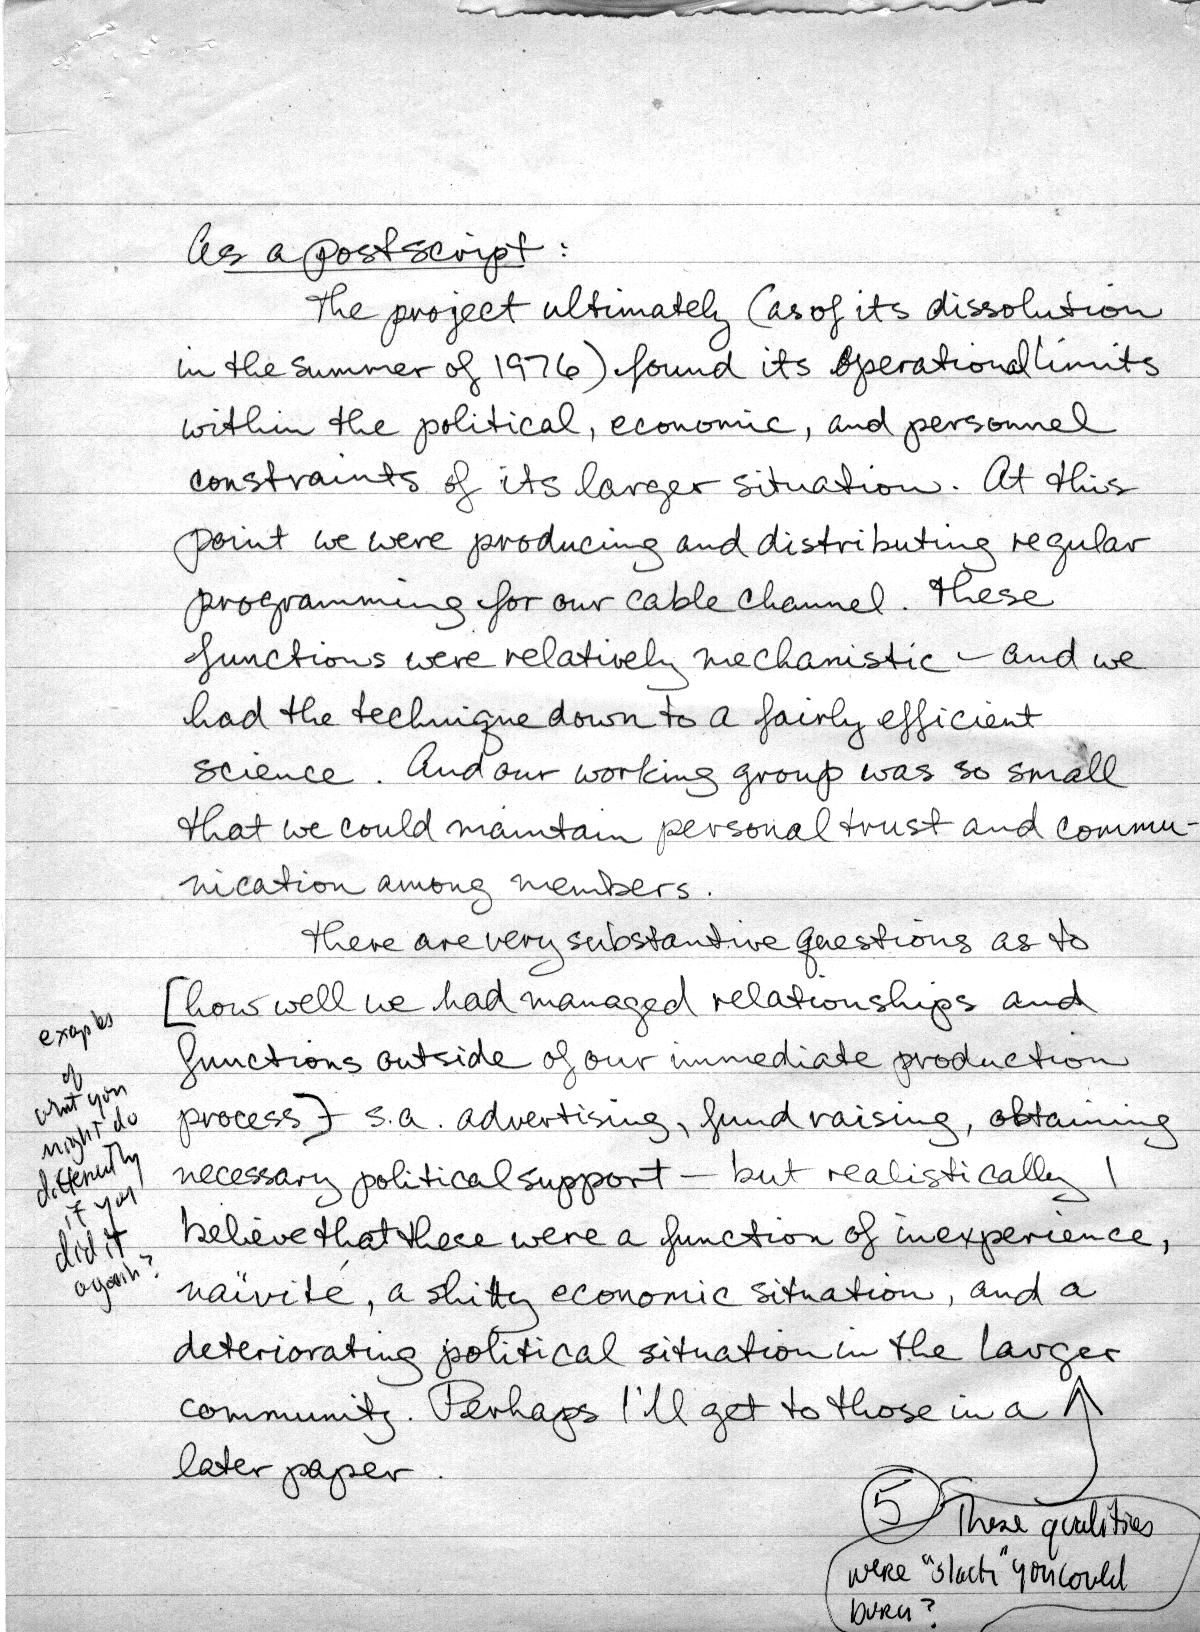 As a postscript:
The project ultimately (as of its dissolution
in the summer of 1976) found its operational limits
within the political, economic, and personnel
constraints of its larger situation. At this
point we were producing and distributing regular
programming for our cable channel. These
functions were relatively mechanistic – and we
had the technique down to a fairly efficient
science. And our working group was so small
that we could maintain personal trust and commu-
nication among members.
There are very substantive questions as to
[how well we had managed relationships and
functions outside of our immediate production
process] – s.a. advertising, fund raising, obtaining
necessary political support – but realistically I
believe that these were a function of inexperience,
naïvité, a shitty economic situation, and a
deteriorating political situation in the larger
community. Perhaps I'll get to those in a
later paper.
examples
of
what you
might do
differently
if you
did it
again?
5 These qualities
were "slack" you could
burn?